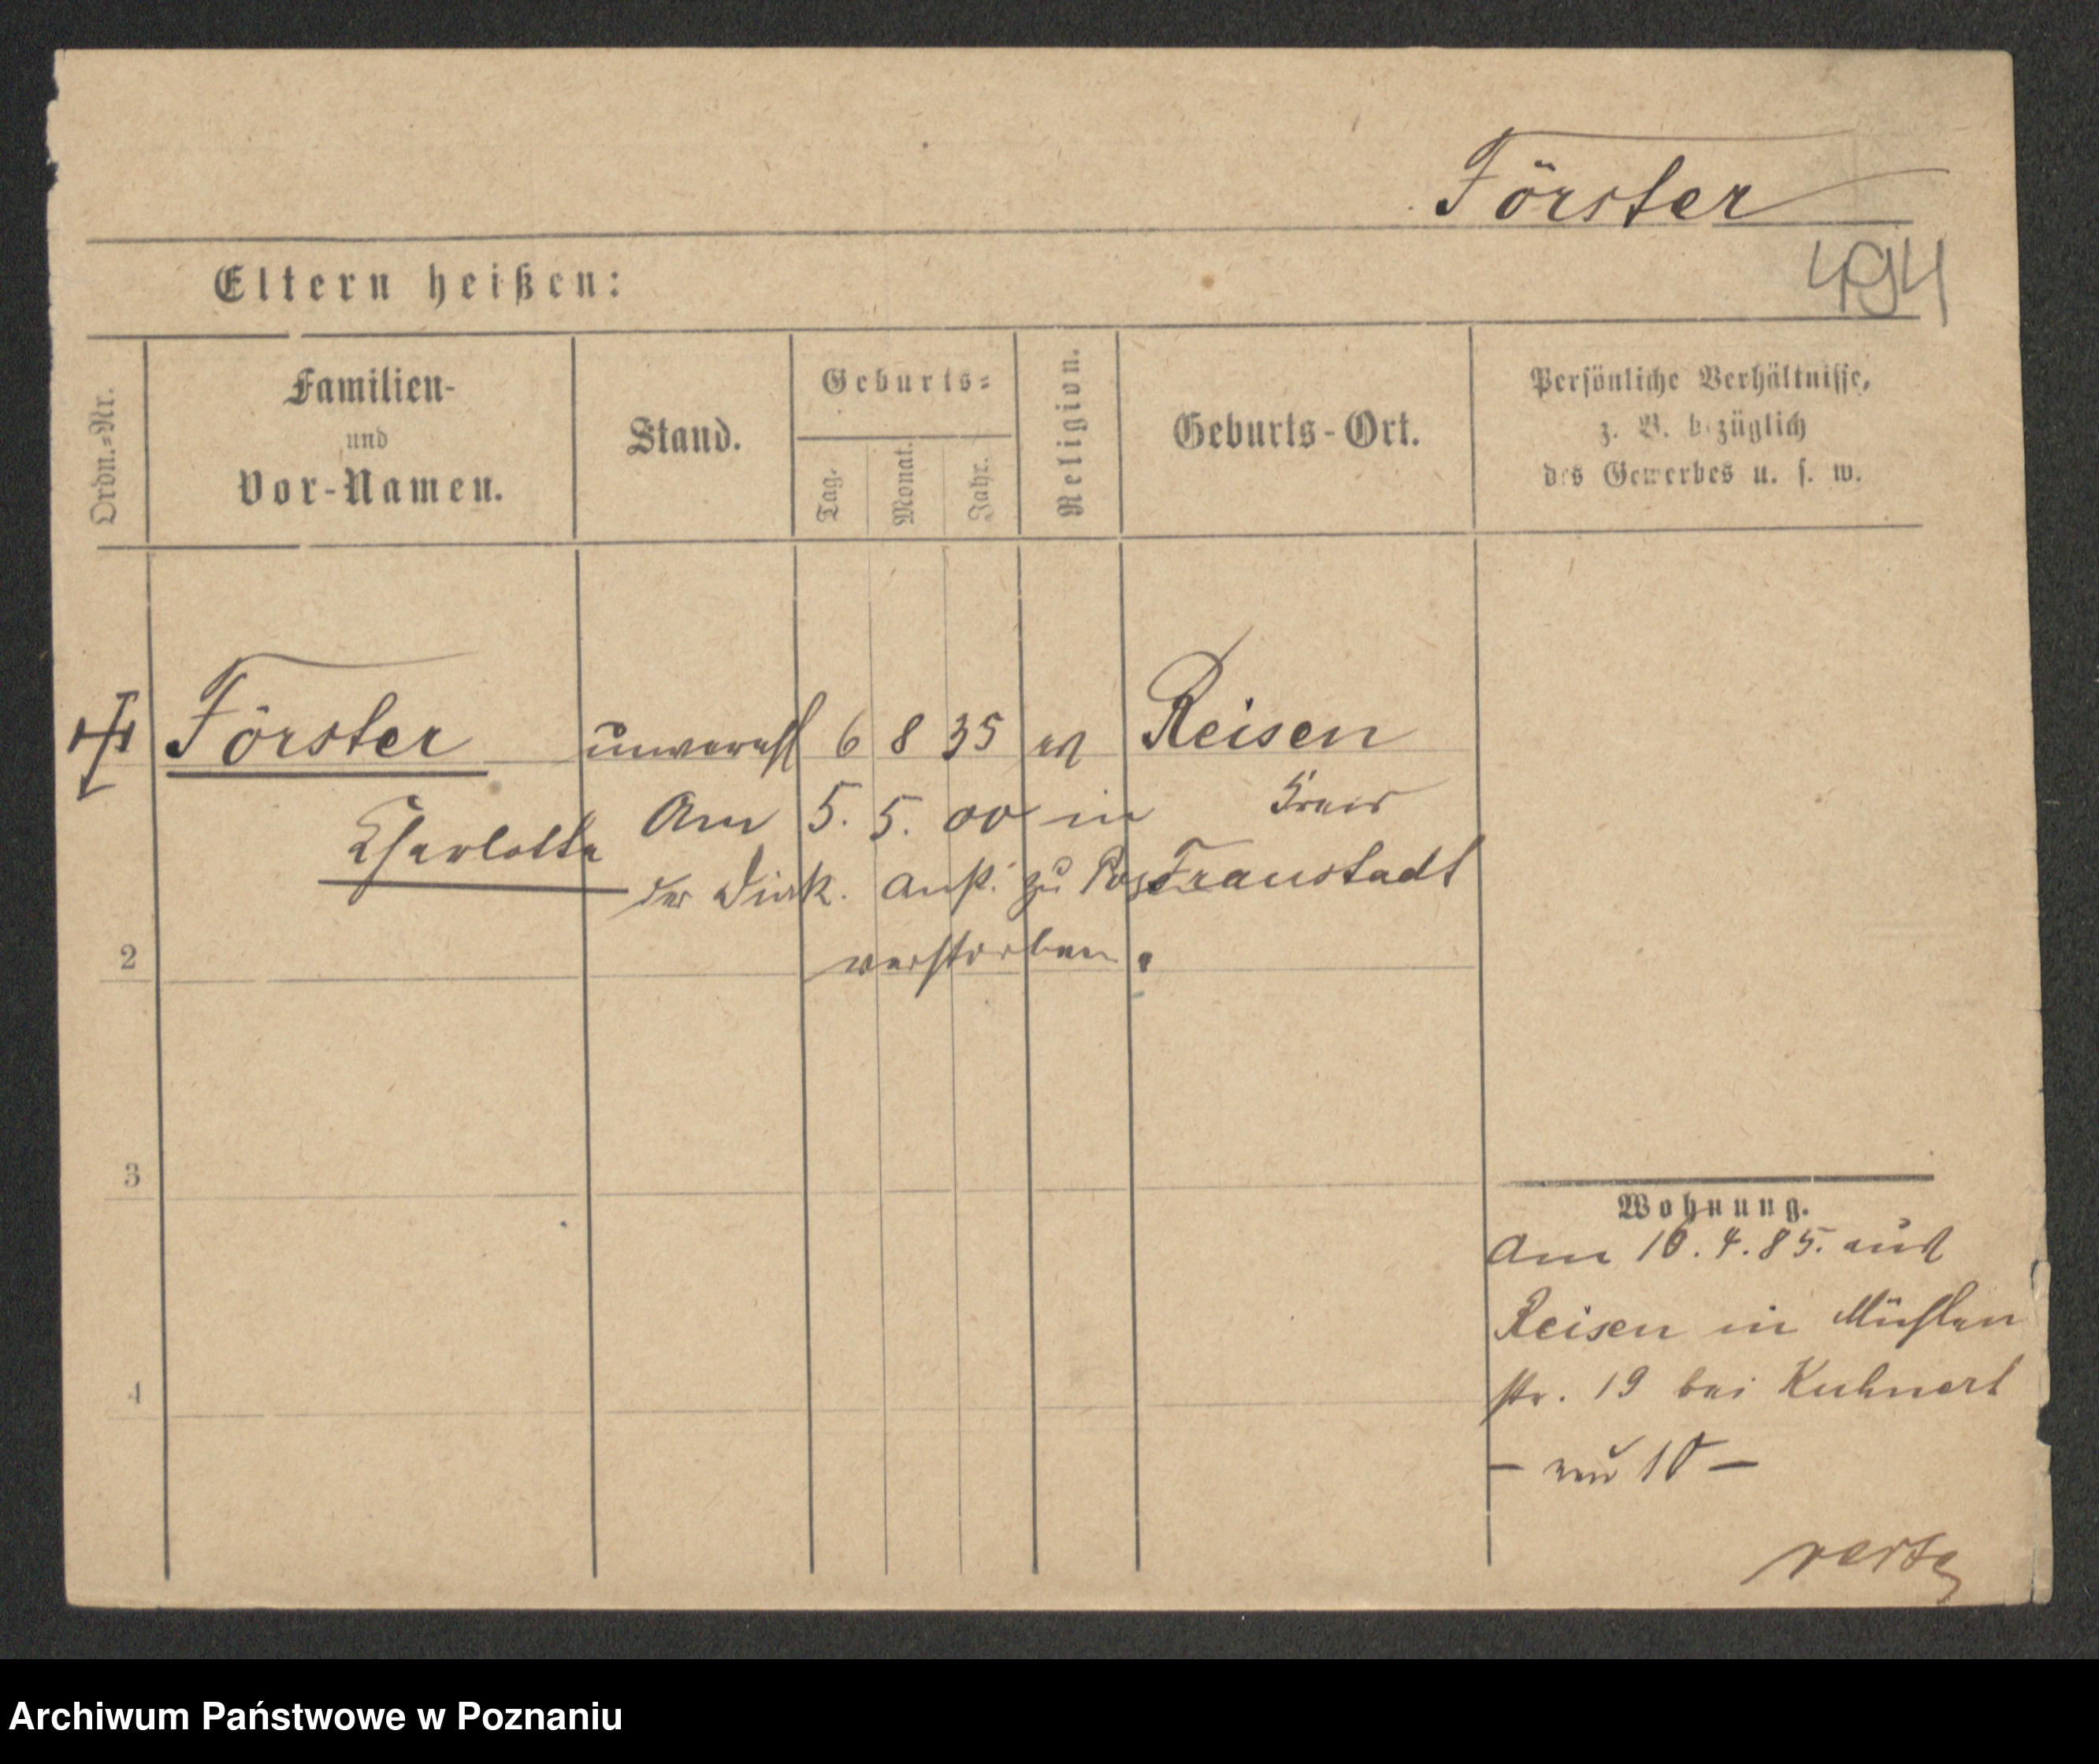 Förster
494
Eltern heißen:
Ordn.=Nr.
Familien-
und
Vor-Namen.
Stand.
Geburts=
Tag.
Monat.
Jahr.
Religion.
Geburts-Ort.
Persönliche Verhältnisse,
z. B. bezüglich
des Gewerbes u. s. w.
Förster unvereh 6 8 35 ev Reisen
Charlotte Am 5. 5. 00 in Kreis
der Diak. Anst. zu Pos Fraustadt
verstorben.
2
3
4
Wohnung.
Am 10. 4. 85. aus
Reisen in Mühlen
str. 19 bei Kuhnert
– neu 10 –
Archiwum Państwowe w Poznaniu